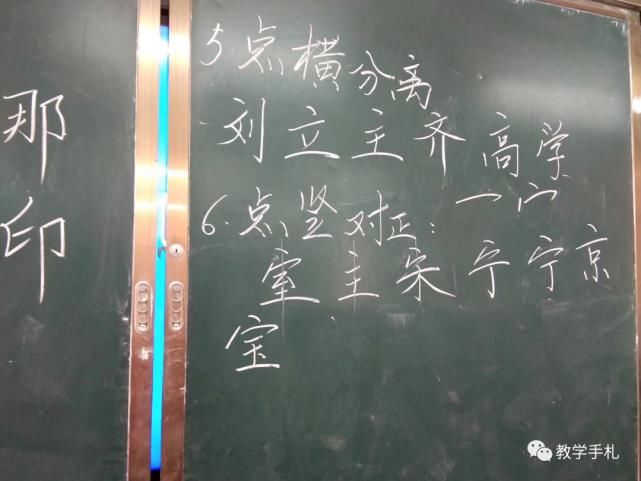 那
印
5.点横分离
刘立主齐高学
6.点竖对正:亠宀
室主宋宁宁京
宝
教学手札